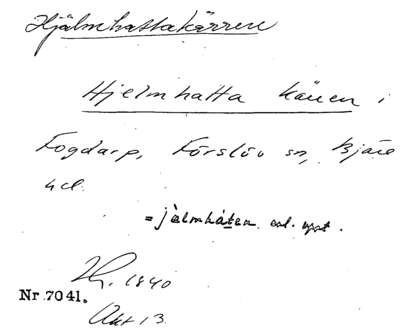 Hjälmhattakärren
Hjelmhatta kären i
Fogdarp, Förslöv sn, Bjäre
hd.
= jälmháten enl. uppt.
1840
Nr 7041.
Akt 13